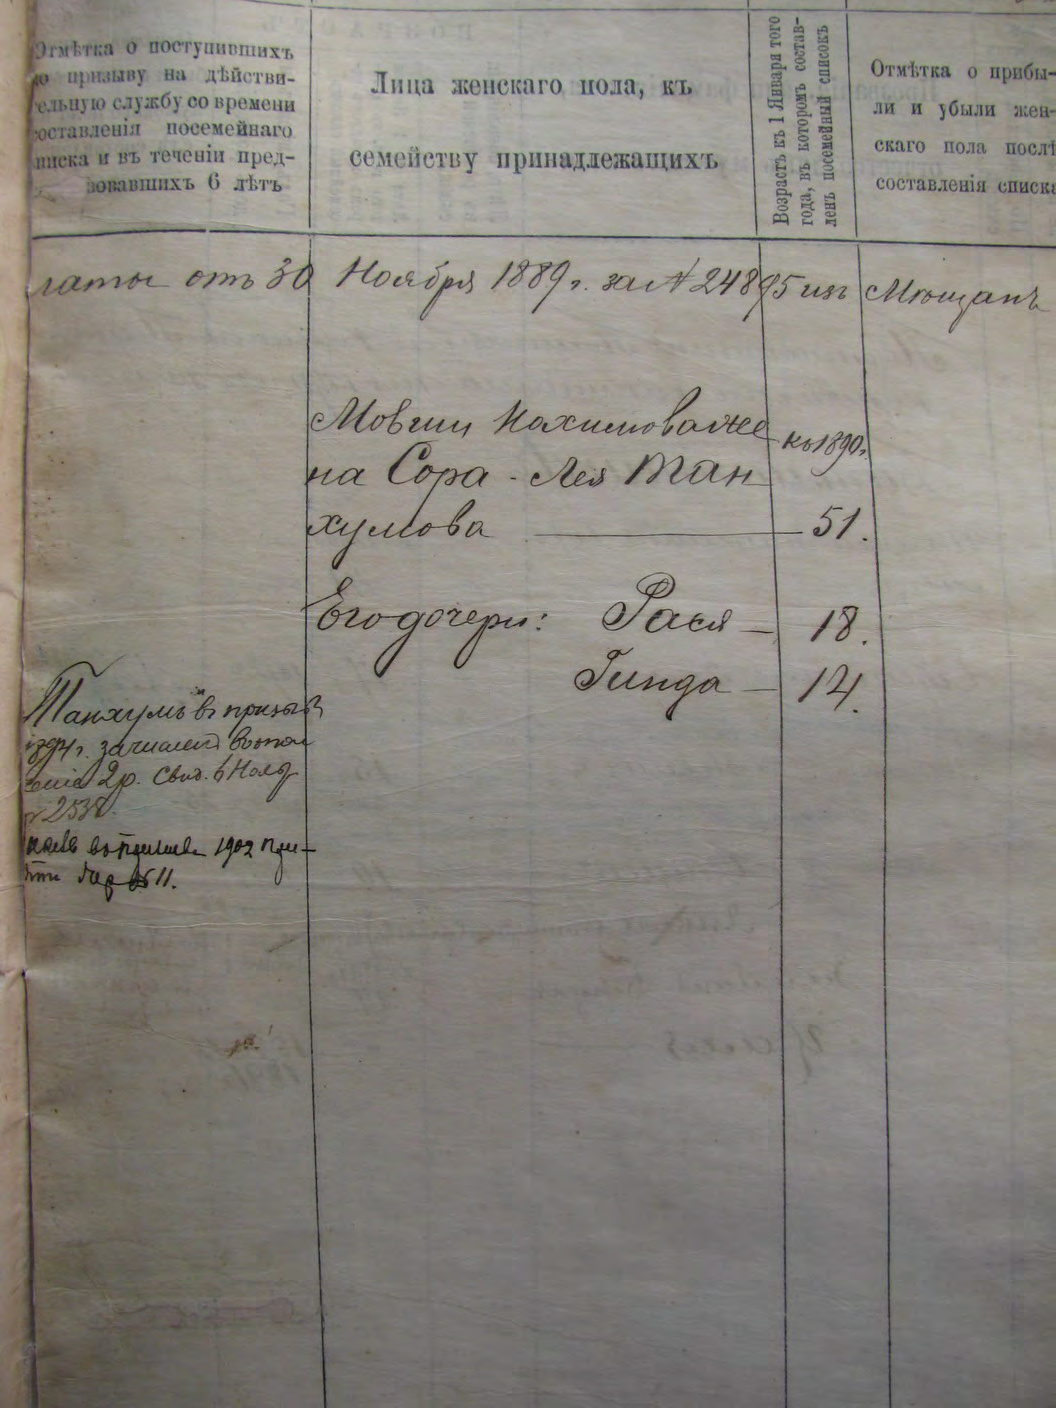 Отмѣтка о поступившихъ
по призыву на дѣйстви-
ельную службу со времени
составленія посемейнаго
писка и въ теченіи пред-
вовавшихъ 6 лѣтъ
Лица женскаго пола, къ
семейству принадлежащихъ
Возрастъ къ 1 Января того
года, въ которомъ состав-
ленъ посемейный списокъ
Отмѣтка о прибы-
ли и убыли жен-
скаго пола послѣ
составленія списка
латы отъ 30 Ноября 1889 г. за № 24895 изъ Мѣщанъ
Мовши Нохимова же
къ 1890 г.
на Сора-Лея Тан
хумова — 51.
Его дочери: Рася — 18.
Гинда — 14.
Танхумъ въ призывъ
1894 г. зачисленъ въ опол
ченіе 2 р. Свид. 6 Нояб
№ 253
1902 при-
№ 11.